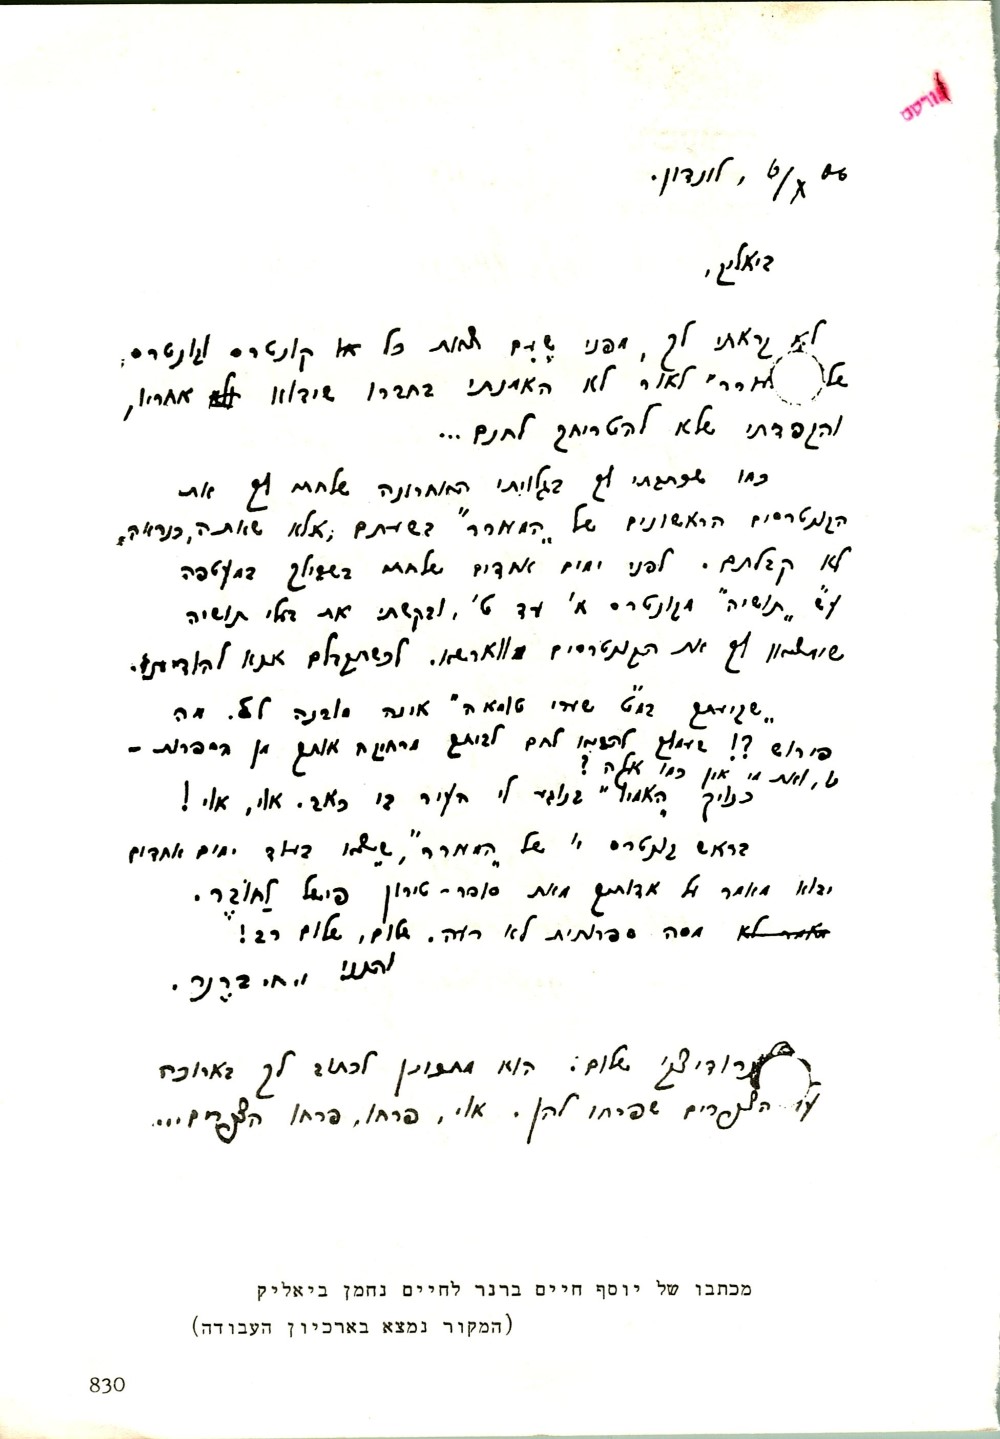 ט/X 06, לונדון.
ביאליק,
לא קראתי לך, מפני שֶגם כל קונטרס וקונטרס,
של לאור לא האמנתי בחברו שיבוא אחריו,
והקפדתי שלא להטריחך לחנם...
כמו שכתבתי לך בגלויתי האחרונה שלחתי לך את
הקונטרסים הראשונים של „המעורר" בשעתם; אלא שאתה, כנראה,
לא קבלתם. לפני ימים אחדים שלחתי בשבילך במעטפה
ע"ש „תושיה" מקונטרס א' עד ט', ובקשתי את בעלי תושיה
שימציאו לך את הקונטרסים לכשתקבלם אנא להודיעני.
„שקיעתך במ"ט שערי טומאה" אינה מובנה לי. מה
פירוש ?! שעמלך להביא לחם לביתך מרחיקה אותך מן הספרות –
נו, ואת מי אין כמו אלה ?
בנוגע לי העיר בי כאב. אוי, אוי !
בראש קונטרס י' של „המעורר", שיֵצא בעוד ימים אחדים
יבוא מאמר על אודותיך מאת סופר-טירון פישל לַחוֹבֶּר.
מסה ספרותית לא רעה. שלום, שלום רב!
י. ח. ברֶנר.
שלום: הוא מתכונן לכתוב לך בארוכה
על הצפרים שפרחו להן. אוי, פרחו, פרחו הצפרים...
מכתבו של יוסף חיים ברנר לחיים נחמן ביאליק
(המקור נמצא בארכיון העבודה)
830